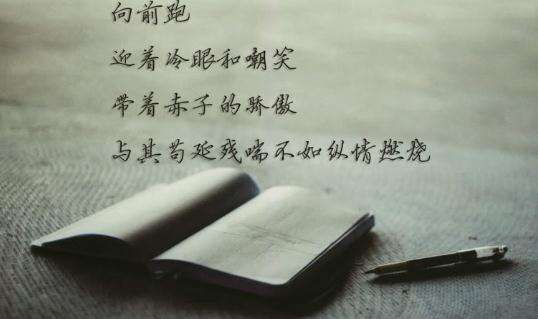 向前跑
迎着冷眼和嘲笑
带着赤子的骄傲
与其苟延残喘不如纵情燃烧